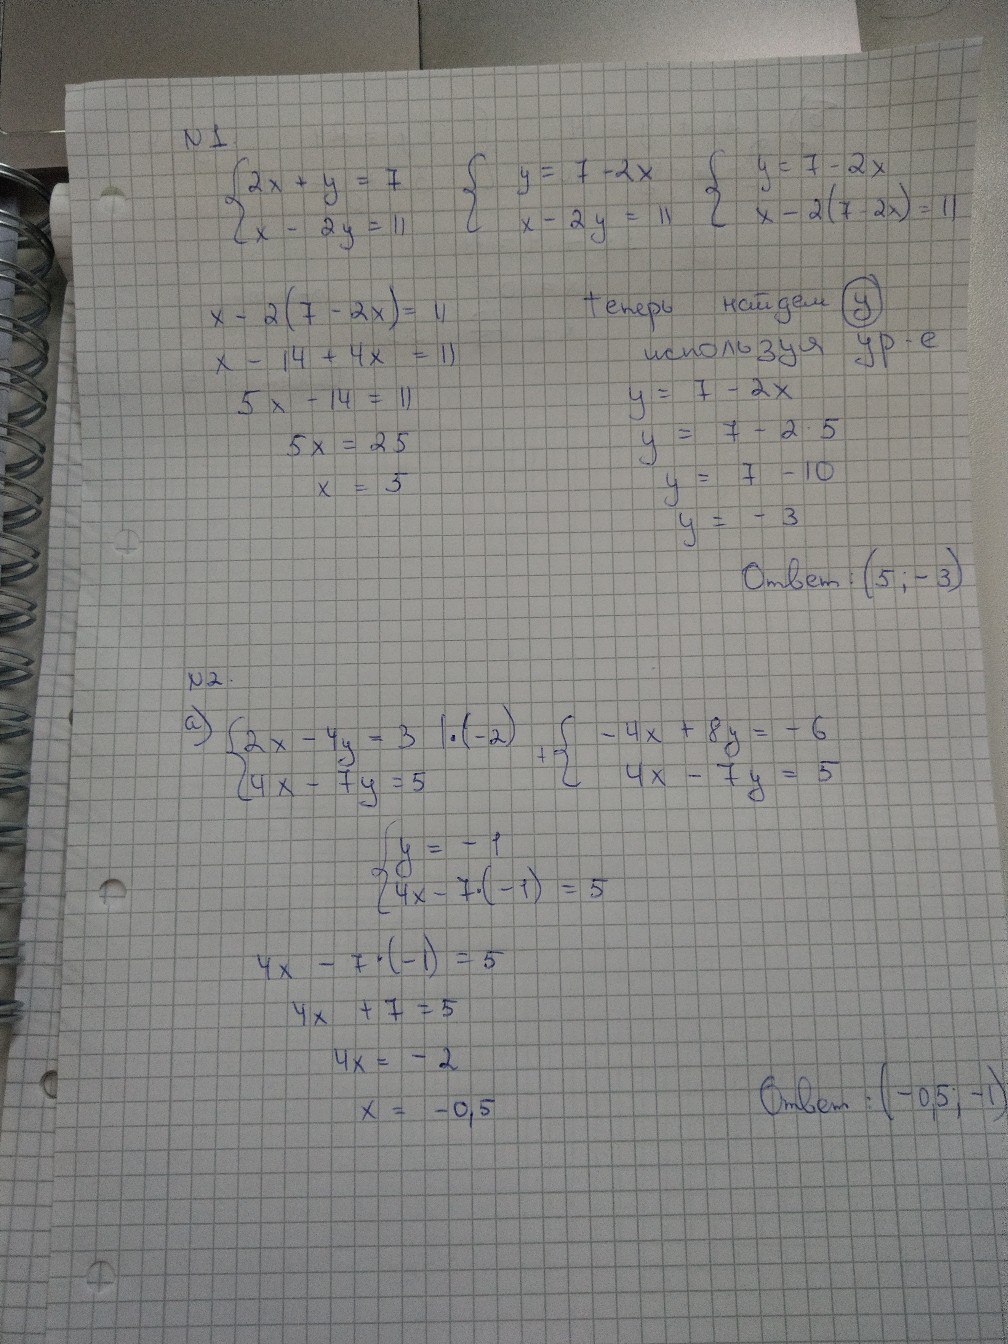 N1
{2x + y = 7 { y = 7 - 2x { y = 7 - 2x
x - 2y = 11 x - 2y = 11 x - 2(7 - 2x) = 11
x - 2(7 - 2x) = 11
x - 14 + 4x = 11
5x - 14 = 11
5x = 25
x = 5
теперь найдем y
используя ур-е
y = 7 - 2x
y = 7 - 2·5
y = 7 - 10
y = - 3
Ответ: (5; - 3)
N2.
а) {2x - 4y = 3 |·(-2) +{ - 4x + 8y = - 6
4x - 7y = 5 4x - 7y = 5
{y = - 1
4x - 7·(-1) = 5
4x - 7·(-1) = 5
4x + 7 = 5
4x = - 2
x = -0,5
Ответ: (-0,5; -1)